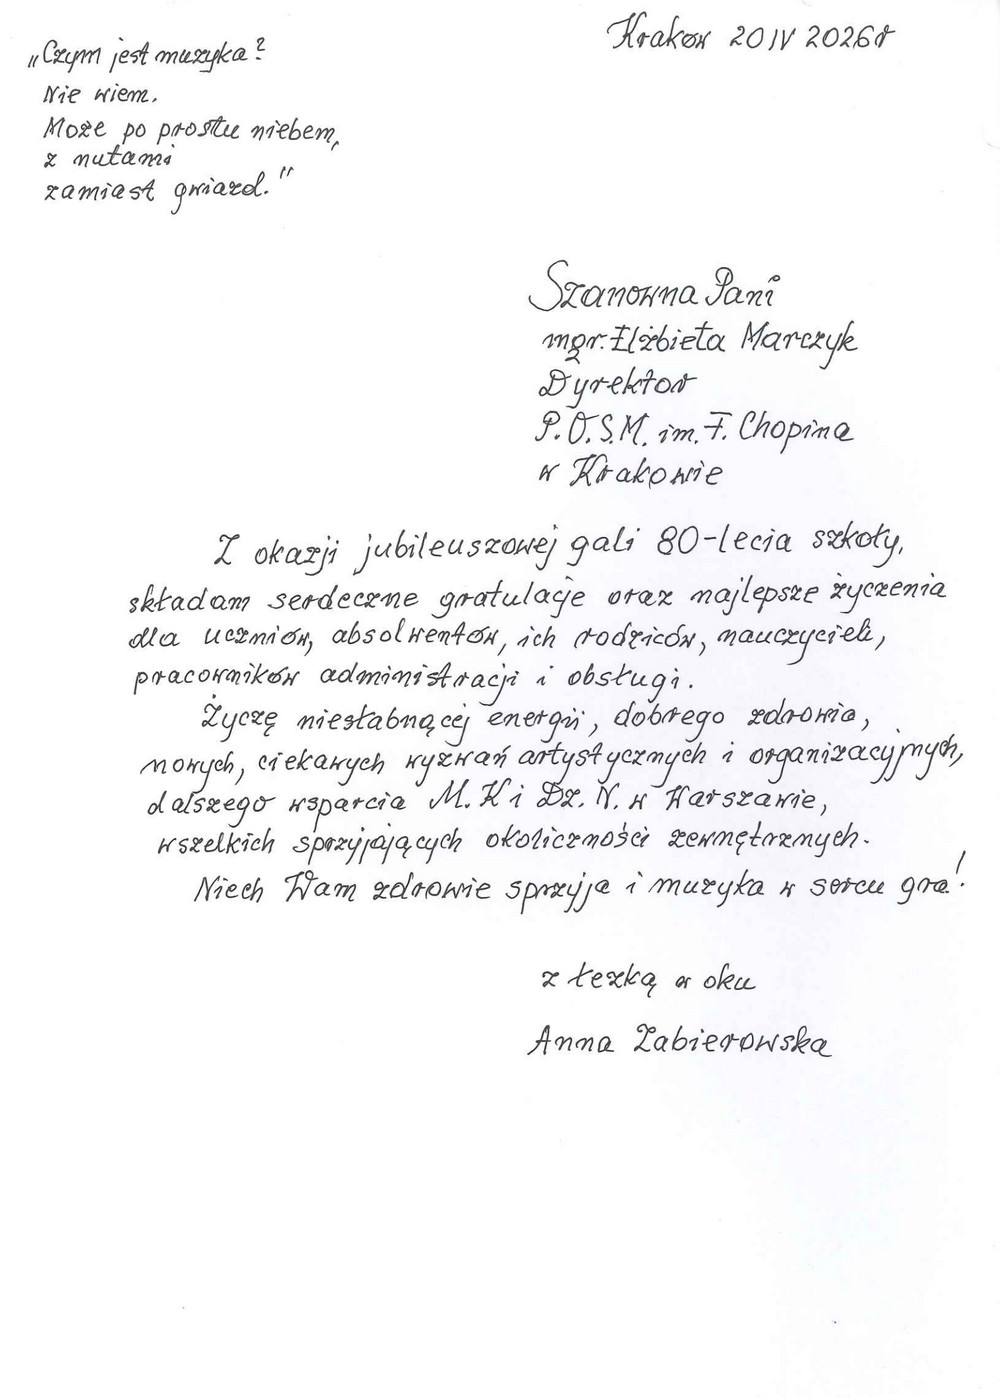 „Czym jest muzyka?
Nie wiem.
Może po prostu niebem,
z nutami
zamiast gwiazd."
Kraków 20 IV 2026r
Szanowna Pani
mgr. Elżbieta Marczyk
Dyrektor
P.O.S.M. im. F. Chopina
w Krakowie
Z okazji jubileuszowej gali 80-lecia szkoły,
składam serdeczne gratulacje oraz najlepsze życzenia
dla uczniów, absolwentów, ich rodziców, nauczycieli,
pracowników administracji i obsługi.
Życzę niesłabnącej energii, dobrego zdrowia,
nowych, ciekawych wyzwań artystycznych i organizacyjnych,
dalszego wsparcia M.K i Dz. N. w Warszawie,
wszelkich sprzyjających okoliczności zewnętrznych.
Niech Wam zdrowie sprzyja i muzyka w sercu gra!
z łezką w oku
Anna Zabierowska